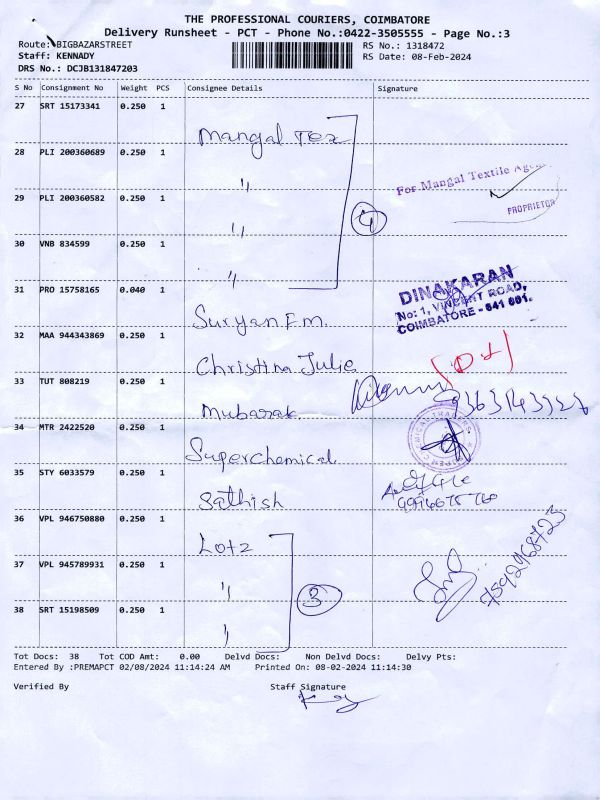 THE PROFESSIONAL COURIERS, COIMBATORE
Delivery Runsheet - PCT - Phone No.:0422-3505555 - Page No.:3
Route: BIGBAZARSTREET RS No.: 1318472
Staff: KENNADY RS Date: 08-Feb-2024
DRS No.: DCJB131847203
S No Consignment No Weight PCS Consignee Details Signature
27 SRT 15173341 0.250 1 Mangal Tex
28 PLI 200360689 0.250 1 "
For Mangal Textile
29 PLI 200360582 0.250 1 "
PROPRIETOR
4
30 VNB 834599 0.250 1 "
31 PRO 15758165 0.040 1 Suryan F.m.
DINAKARAN
No: 1, VINCENT ROAD,
COIMBATORE - 641 001.
32 MAA 944343869 0.250 1 Christina Julie
33 TUT 808219 0.250 1 Mubarak
34 MTR 2422520 0.250 1 Superchemical
35 STY 6033579 0.250 1 Sathish
36 VPL 946750880 0.250 1 Lotz
37 VPL 945789931 0.250 1 "
3
7592968723
38 SRT 15198509 0.250 1 "
Tot Docs: 38 Tot COD Amt: 0.00 Delvd Docs: Non Delvd Docs: Delvy Pts:
Entered By :PREMAPCT 02/08/2024 11:14:24 AM Printed On: 08-02-2024 11:14:30
Verified By Staff Signature